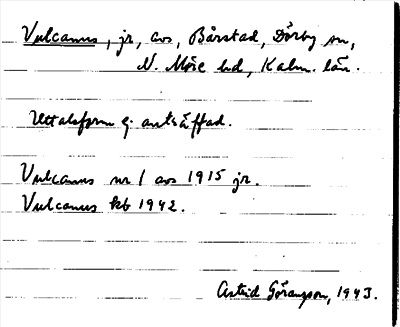 Vulcanus, jr, avs, Bårstad, Dörby sn,
N. Möre hd, Kalm. län.
Uttalsform ej anträffad.
Vulcanus nr 1 avs 1915 jr.
Vulcanus kb 1942.
Astrid Göransson, 1943.